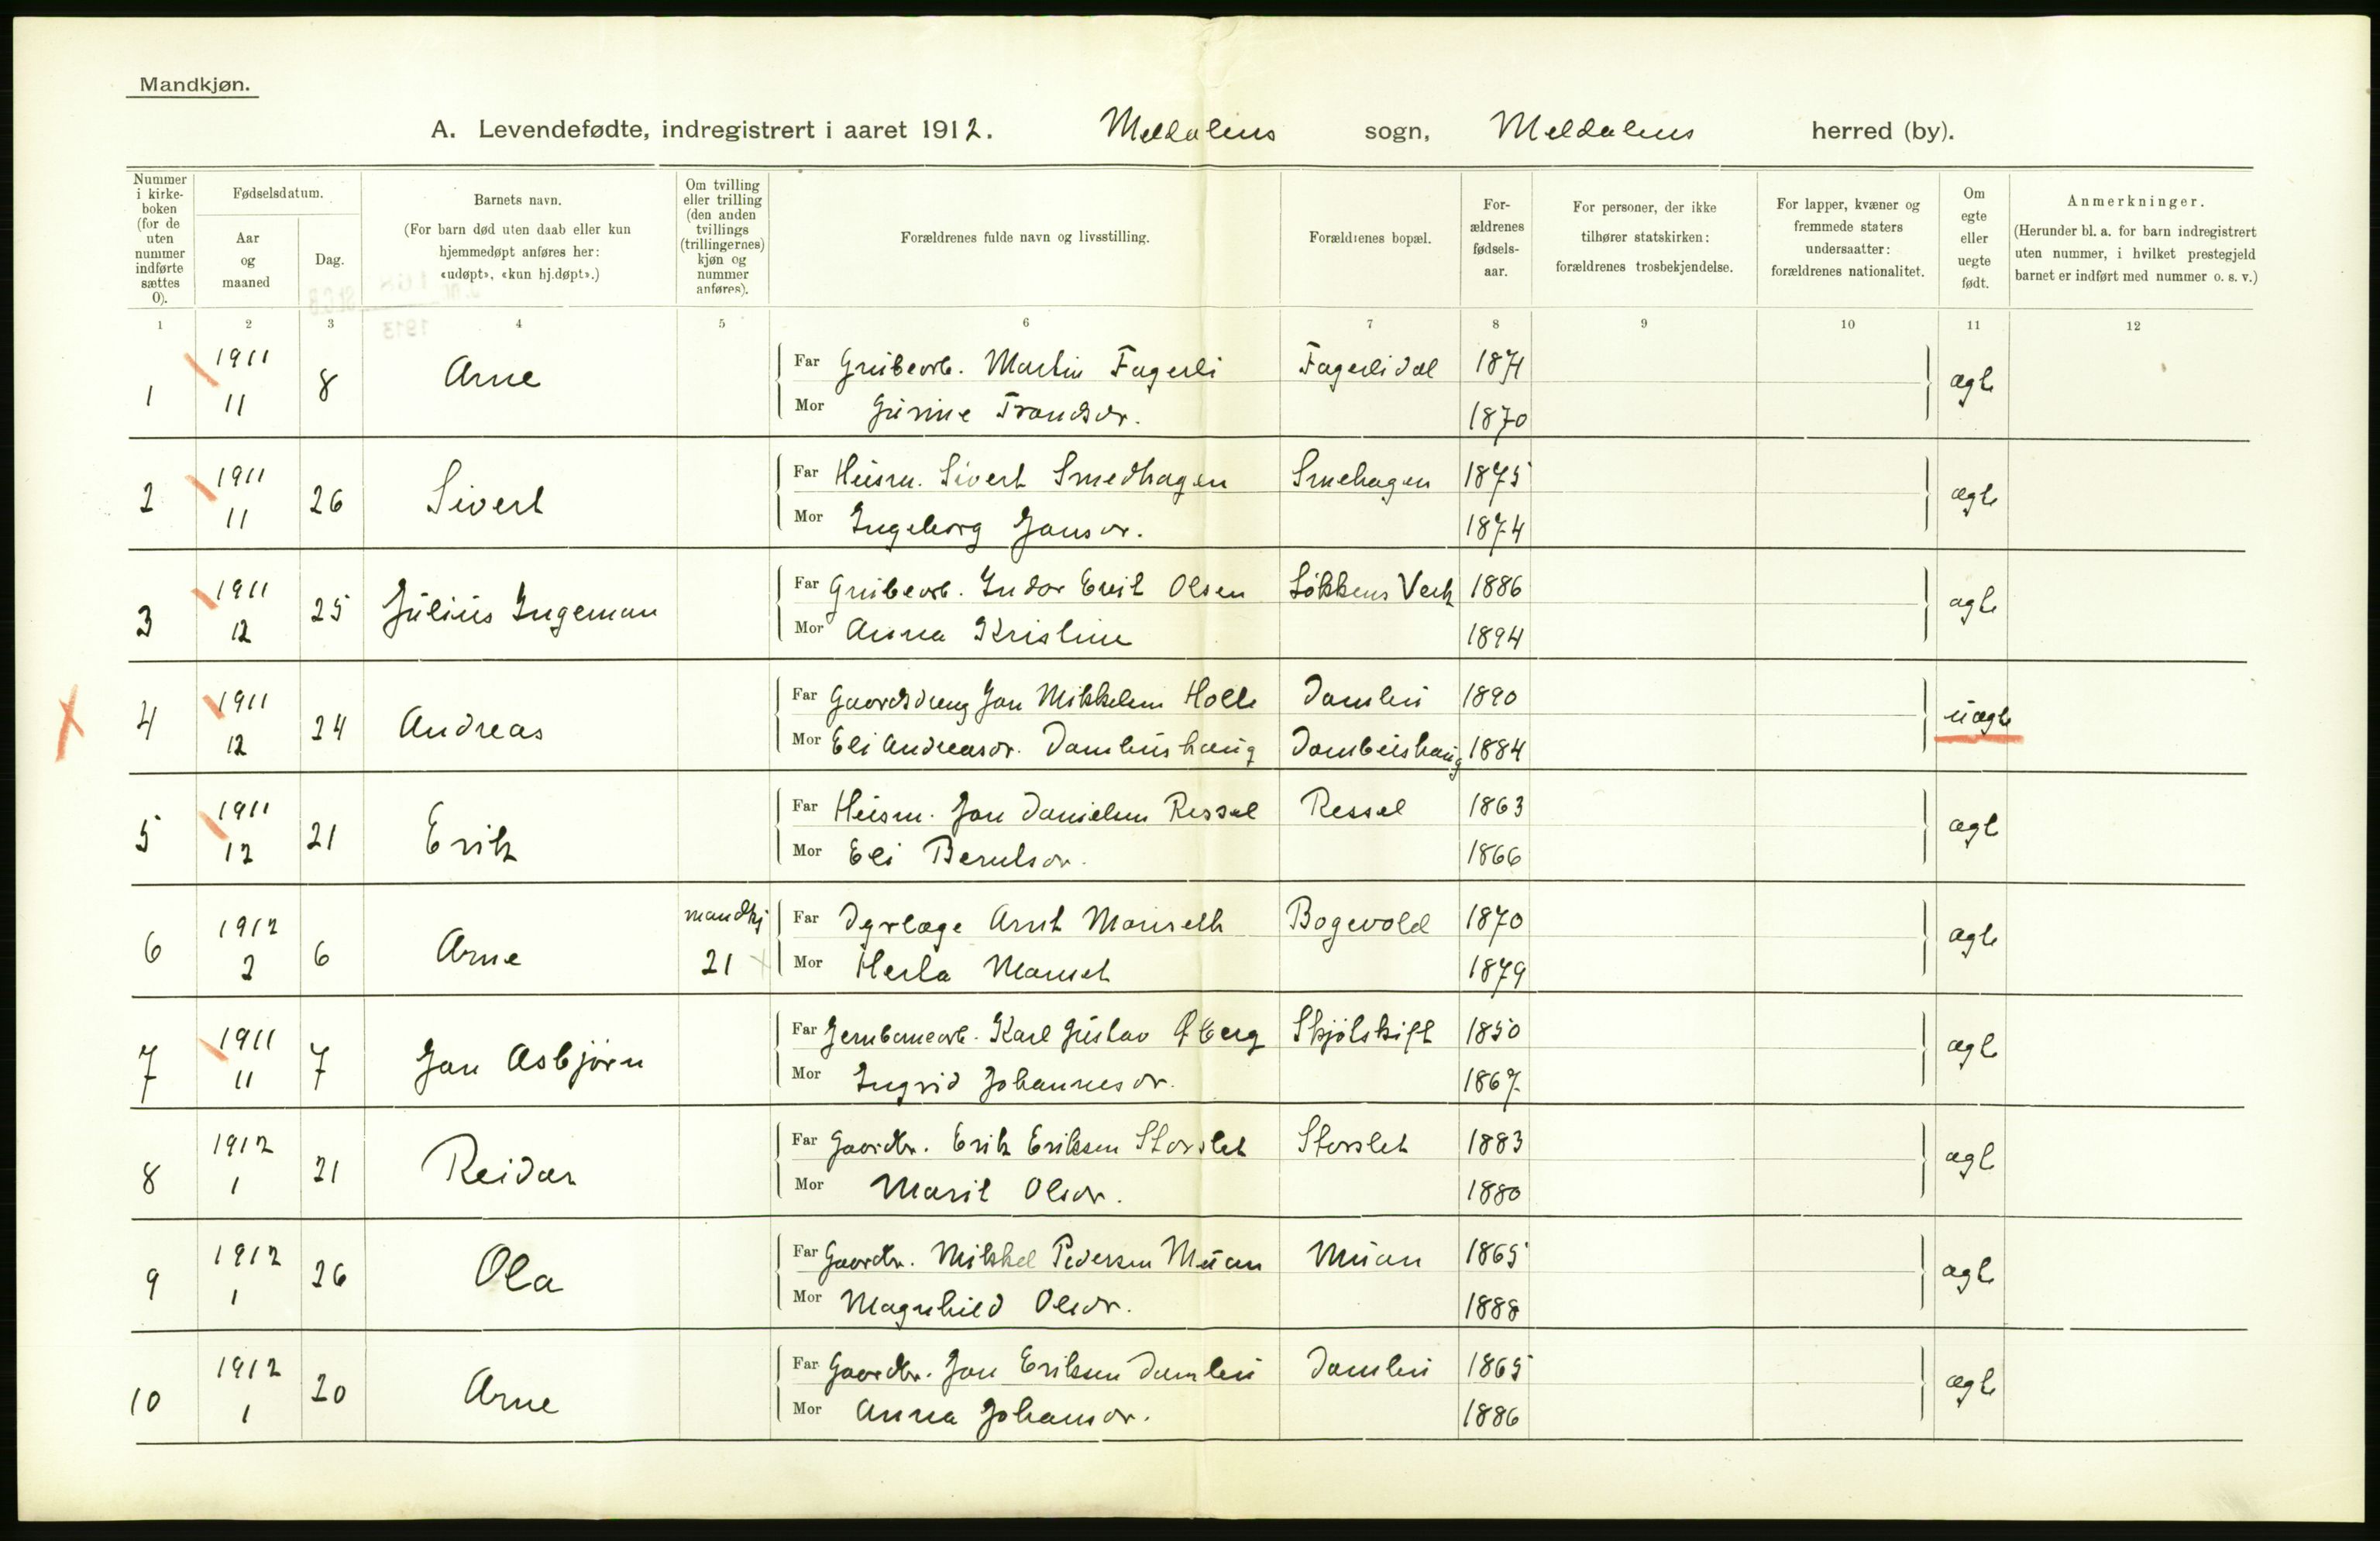 Mandkjøn.
A. Levendefødte, indregistrert i aaret 1912. Meldalens sogn, Meldalens herred (by).
Nummer i kirke-boken (for de uten nummer indførte sættes 0).
Fødselsdatum.
Aar og maaned
Dag.
Barnets navn.
(For barn død uten daab eller kun hjemmedøpt anføres her: «udøpt», «kun hj.døpt».)
Om tvilling eller trilling (den anden tvillings (trillingernes) kjøn og nummer anføres).
Forældrenes fulde navn og livsstilling.
Forældrenes bopæl.
For-ældrenes fødsels-aar.
For personer, der ikke tilhører statskirken: forældrenes trosbekjendelse.
For lapper, kvæner og fremmede staters undersaatter: forældrenes nationalitet.
Om egte eller uegte født.
Anmerkninger.
(Herunder bl. a. for barn indregistrert uten nummer, i hvilket prestegjeld barnet er indført med nummer o. s. v.)
1 2 3 4 5 6 7 8 9 10 11 12
1 1911 11 8 Arne Far Grubearb. Martin Fagerli Fagerlidal 1871 ægte
Mor Gurine Trondsdr. 1870
2 1911 11 26 Sivert Far Husm. Sivert Smedhagen Smehagen 1875 ægte
Mor Ingeborg Jonsdr. 1874
3 1911 12 25 Julius Ingeman Far Grubearb. Indor Emil Olsen Løkkens Verk 1886 ægte
Mor Anna Kristine 1894
4 1911 12 24 Andreas Far Gaardsdreng Jon Mikkelsen Holle Damlui 1890 uægte
Mor Eli Andreasdr. Damlushaug 1884
5 1911 12 21 Erik Far Husm. Jon Danielsen Ressel Ressel 1863 ægte
Mor Eli Berntsdr. 1866
6 1912 2 6 Arne mandkj 21 Far Dyrlæge Arnt Monseth Bogevold 1870 ægte
Mor Herla Monset 1879
7 1911 11 7 Jon Asbjørn Far Jernbanearb. Karl Gustav Øberg Skjølskift 1850 ægte
Mor Ingrid Johannesdr. 1867
8 1912 1 21 Reidar Far Gaardbr. Erik Eriksen Storslet Storslet 1883 ægte
Mor Marit Olsdr. 1880
9 1912 1 26 Ola Far Gaardbr. Mikkel Pedersen Muan Muan 1865 ægte
Mor Magnhild Olsdr. 1888
10 1912 1 20 Arne Far Gaardbr. Jon Eriksen Damlui Damlui 1865 ægte
Mor Anna Johansdr. 1886